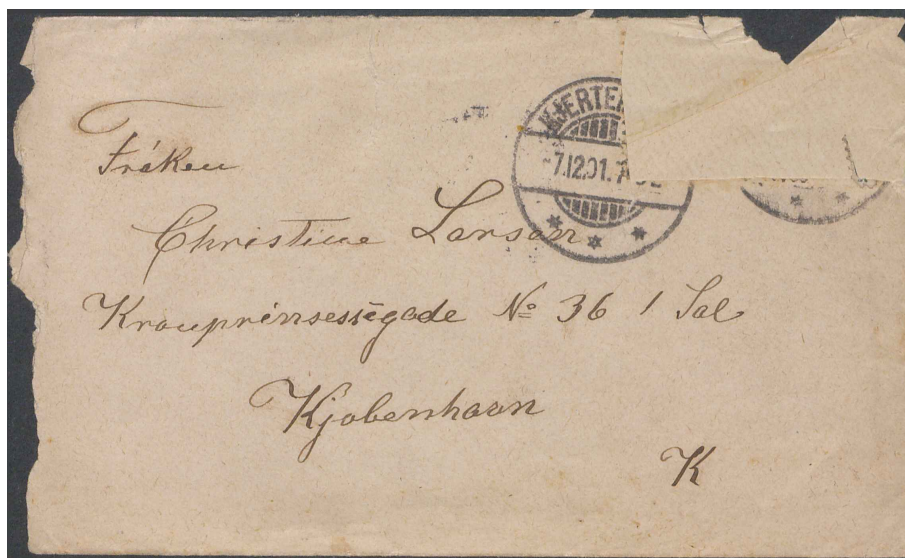 KJERTE
-7.12.01.7
Fröken
Christine Larsen
Kronprinsessegade № 36 1 Sal
Kjøbenhavn
K